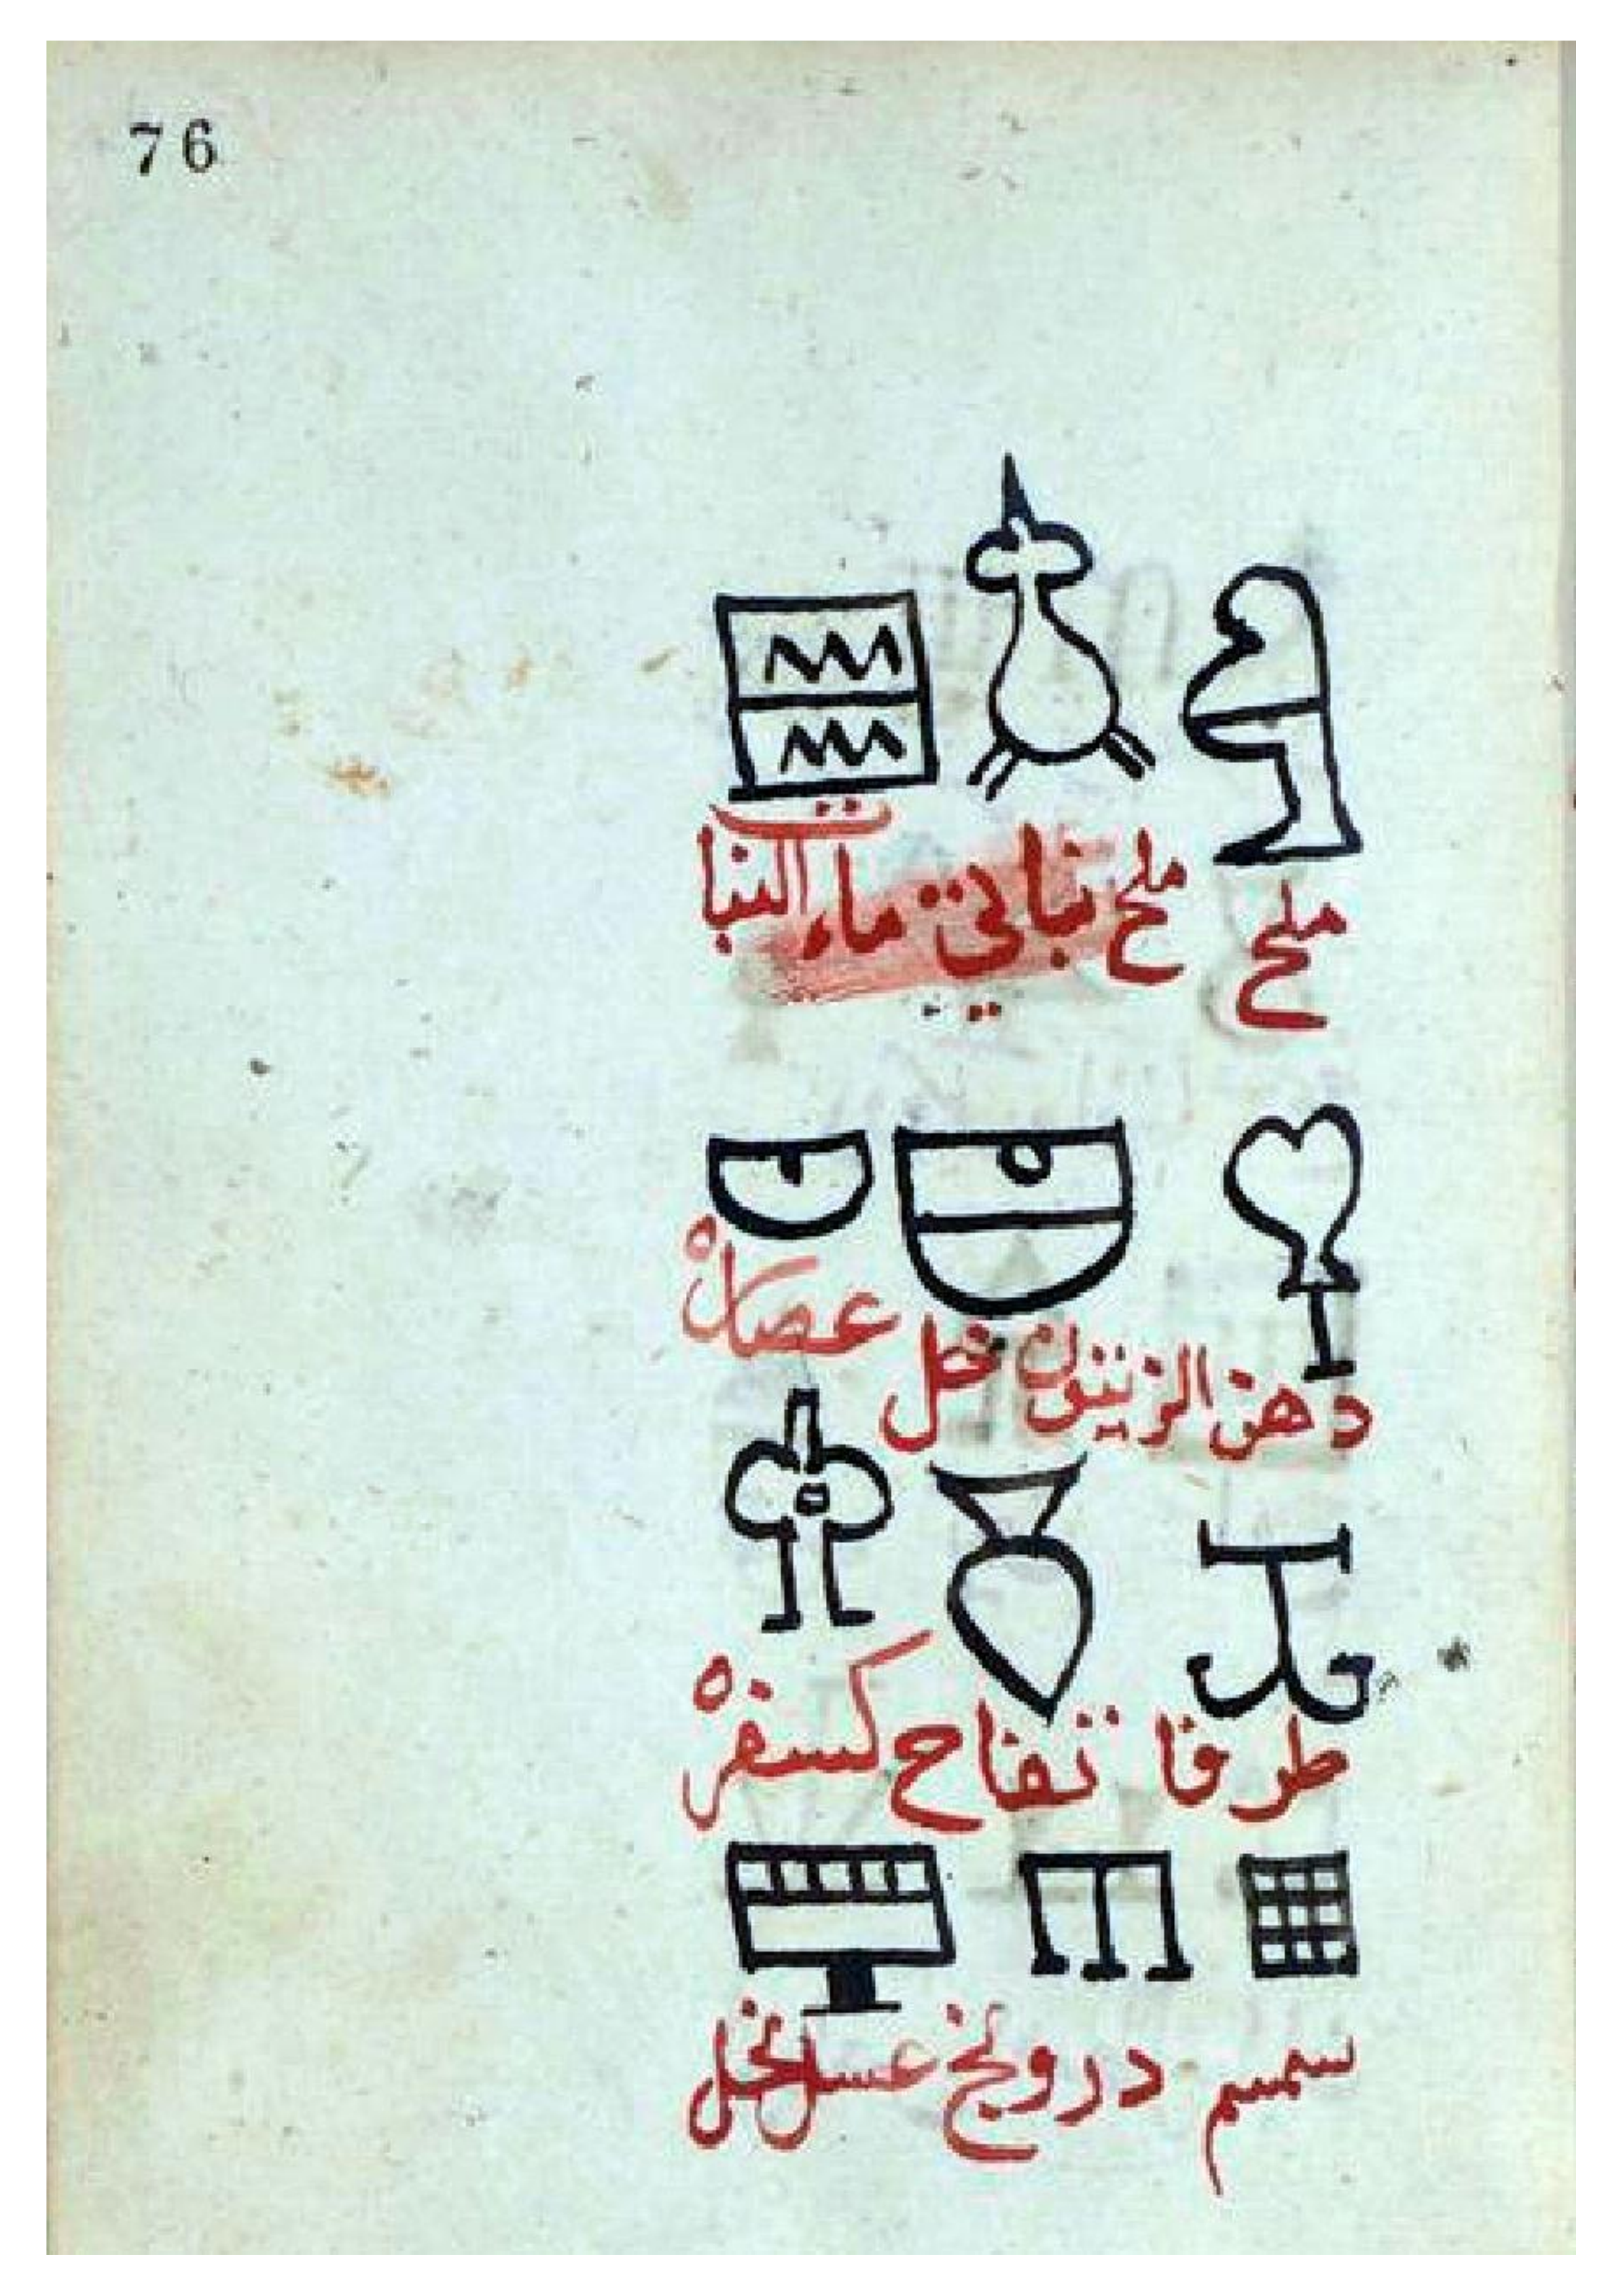 76
ملح ملح نباتي ماء النبات
دهن الزيتون خل عصاره
طرفا تفاح كسفره
سمسم درونج عسل نحل